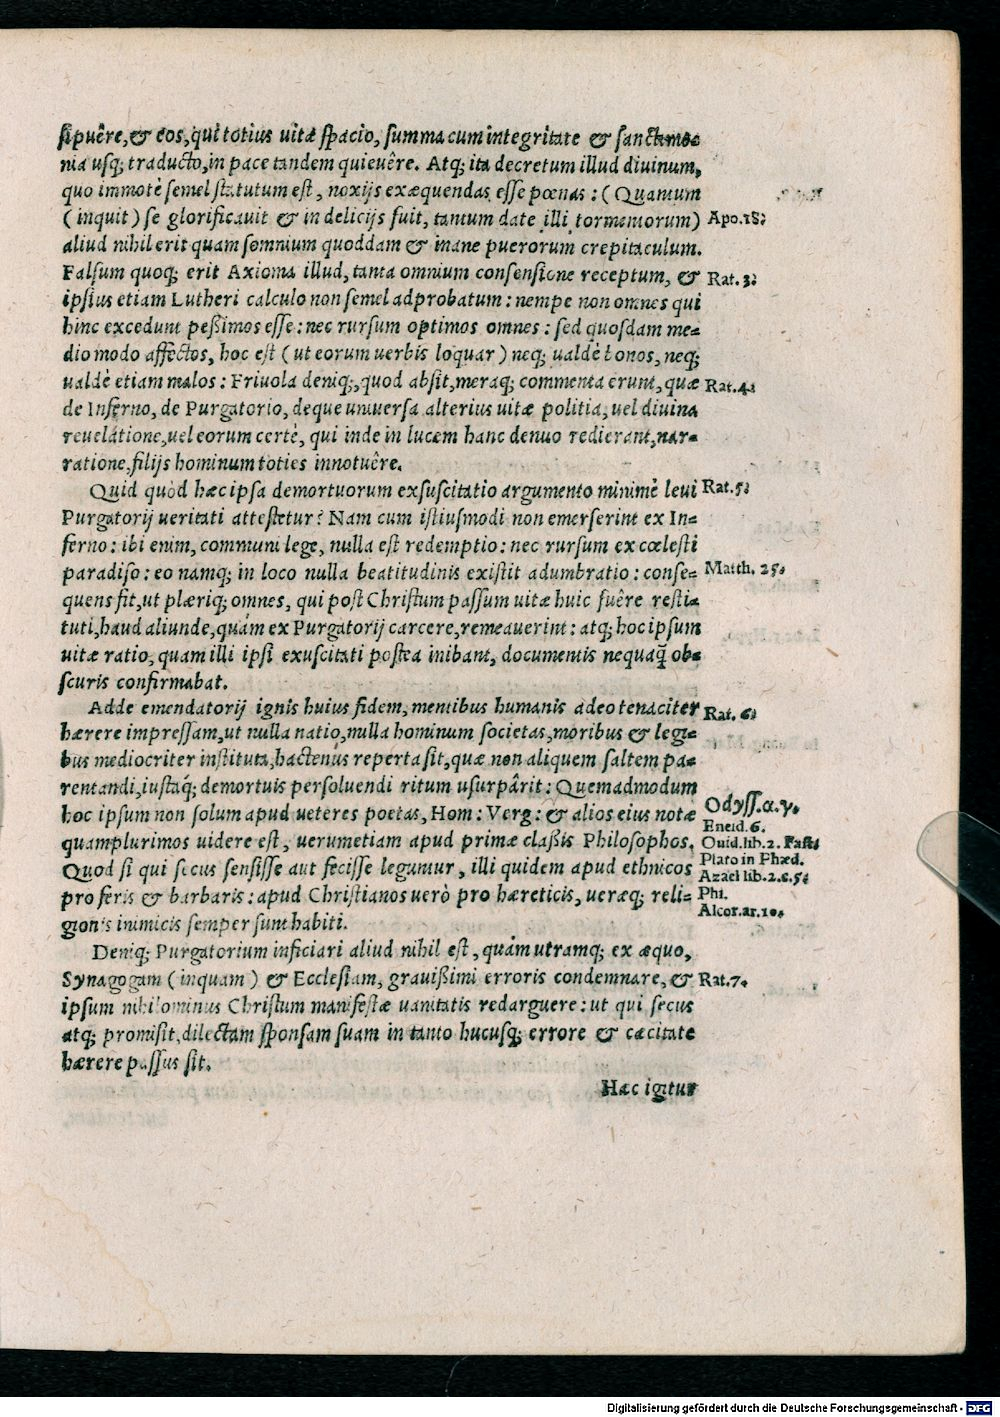 sipuêre, & eos, qui totius uitæ spacio, summa cum integritate & sanctimo=
nia usq; traducto, in pace tandem quieuêre. Atq; ita decretum illud diuinum,
quo immotè semel statutum est, noxijs exæquendas esse pœnas: (Quantum
(inquit) se glorificauit & in delicijs fuit, tantum date illi tormentorum) Apo.18.
aliud nihil erit quam somnium quoddam & inane puerorum crepitaculum.
Falsum quoq; erit Axioma illud, tanta omnium consensione receptum, & Rat. 3.
ipsius etiam Lutheri calculo non semel adprobatum: nempe non omnes qui
hinc excedunt peßimos esse: nec rursum optimos omnes: sed quosdam me=
dio modo affectos, hoc est (ut eorum uerbis loquar) neq; ualdè bonos, neq;
ualdè etiam malos: Friuola deniq;, quod absit, meraq; commenta erunt, quæ Rat. 4.
de Inferno, de Purgatorio, deque uniuersa alterius uitæ politia, uel diuina
reuelatione, uel eorum certè, qui inde in lucem hanc denuo redierant, nar=
ratione, filijs hominum toties innotuêre.
Quid quòd hæc ipsa demortuorum exsuscitatio argumento minimè leui Rat. 5.
Purgatorij ueritati attestetur? Nam cum istiusmodi non emerserint ex In=
ferno: ibi enim, communi lege, nulla est redemptio: nec rursum ex cœlesti
paradiso: eo namq; in loco nulla beatitudinis existit adumbratio: conse= Matth. 25.
quens fit, ut plæriq; omnes, qui post Christum passum uitæ huic fuêre resti=
tuti, haud aliunde, quàm ex Purgatorij carcere, remeauerint: atq; hoc ipsum
uitæ ratio, quam illi ipsi exuscitati postea inibant, documentis nequaq̃ ob=
scuris confirmabat.
Adde emendatorij ignis huius fidem, mentibus humanis adeo tenaciter Rat. 6.
hærere impressam, ut nulla natio, nulla hominum societas, moribus & legi=
bus mediocriter instituta, hactenus reperta sit, quæ non aliquem saltem pa=
rentandi, iustaq́; demortuis persoluendi ritum usurpârit: Quemadmodum
hoc ipsum non solum apud ueteres poetas, Hom: Verg: & alios eius notæ Odyss. α. γ.
Eneid. 6.
quamplurimos uidere est, uerumetiam apud primæ claßis Philosophos. Ouid. lib. 2. Fast.
Plato in Phæd.
Quod si qui secus sensisse aut fecisse leguntur, illi quidem apud ethnicos Azael lib. 2. c. 5.
pro feris & barbaris: apud Christianos uerò pro hæreticis, ueræq; reli= Phi.
Alcor. ar. 10.
gionis inimicis semper sunt habiti.
Deniq; Purgatorium inficiari aliud nihil est, quàm utramq; ex æquo,
Synagogam (inquam) & Ecclesiam, grauißimi erroris condemnare, & Rat. 7.
ipsum nihilominus Christum manifestæ uanitatis redarguere: ut qui secus
atq; promisit, dilectam sponsam suam in tanto hucusq; errore & cæcitate
hærere passus sit.
Hæc igitur
Digitalisierung gefördert durch die Deutsche Forschungsgemeinschaft - DFG